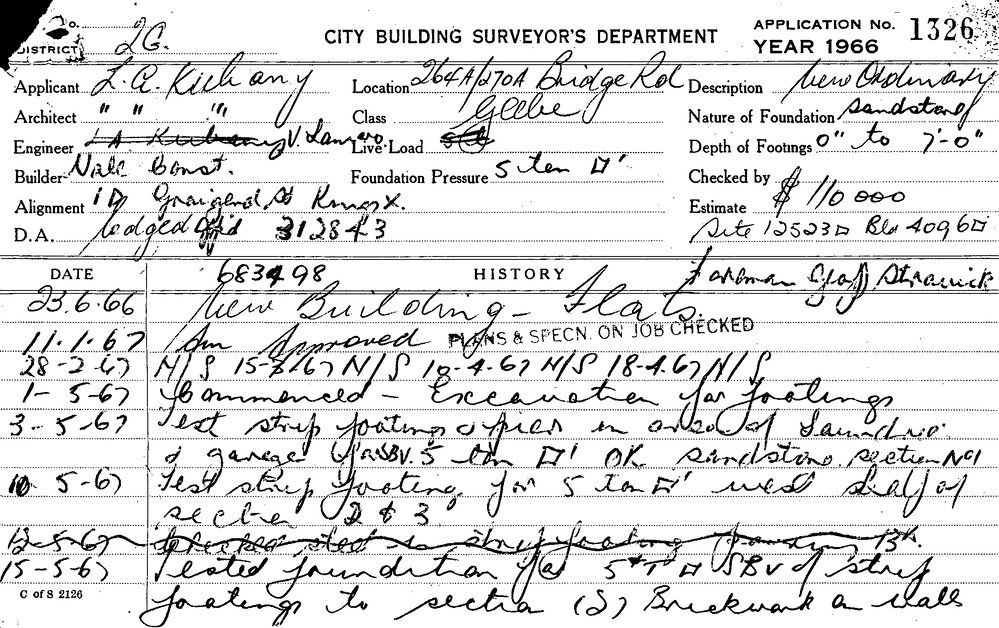 No.
DISTRICT 26.
CITY BUILDING SURVEYOR'S DEPARTMENT
APPLICATION No. 1326
YEAR 1966
Applicant L. A.
Location 264A/270A Bridge Rd
Glebe
Description New Ordinary
Architect " " "
Class
Nature of Foundation Sandstone
Engineer V.
Live-Load
Depth of Footings 0" to 7'-0"
Builder Const.
Foundation Pressure 5 ton □'
Checked by
Alignment St Kings X.
Estimate $ 110 000
D.A. lodged 312843
Site 12523□ Bld 4096□
683498
Foreman
DATE HISTORY
23.6.66 New Building - Flats.
11.1.67 Approved PLANS & SPECN. ON JOB CHECKED
28-2-67 N/S 15-3/67 N/S 10-4.67 N/S 18-4.67 N/S
1-5-67 Commenced - Excavation for footings
3-5-67 Test strip footings & piers in area of Laundrie
& garage for SBV. 5 ton □' OK sandstone. section No 1
10 5-67 Test strip footing for 5 ton □' west half of
section 2 & 3
12-5-67 strip footing
15-5-67 Tested foundation for 5 T □ SBV of strip
footings to section (2) Brickwork on walls
C of S 2126